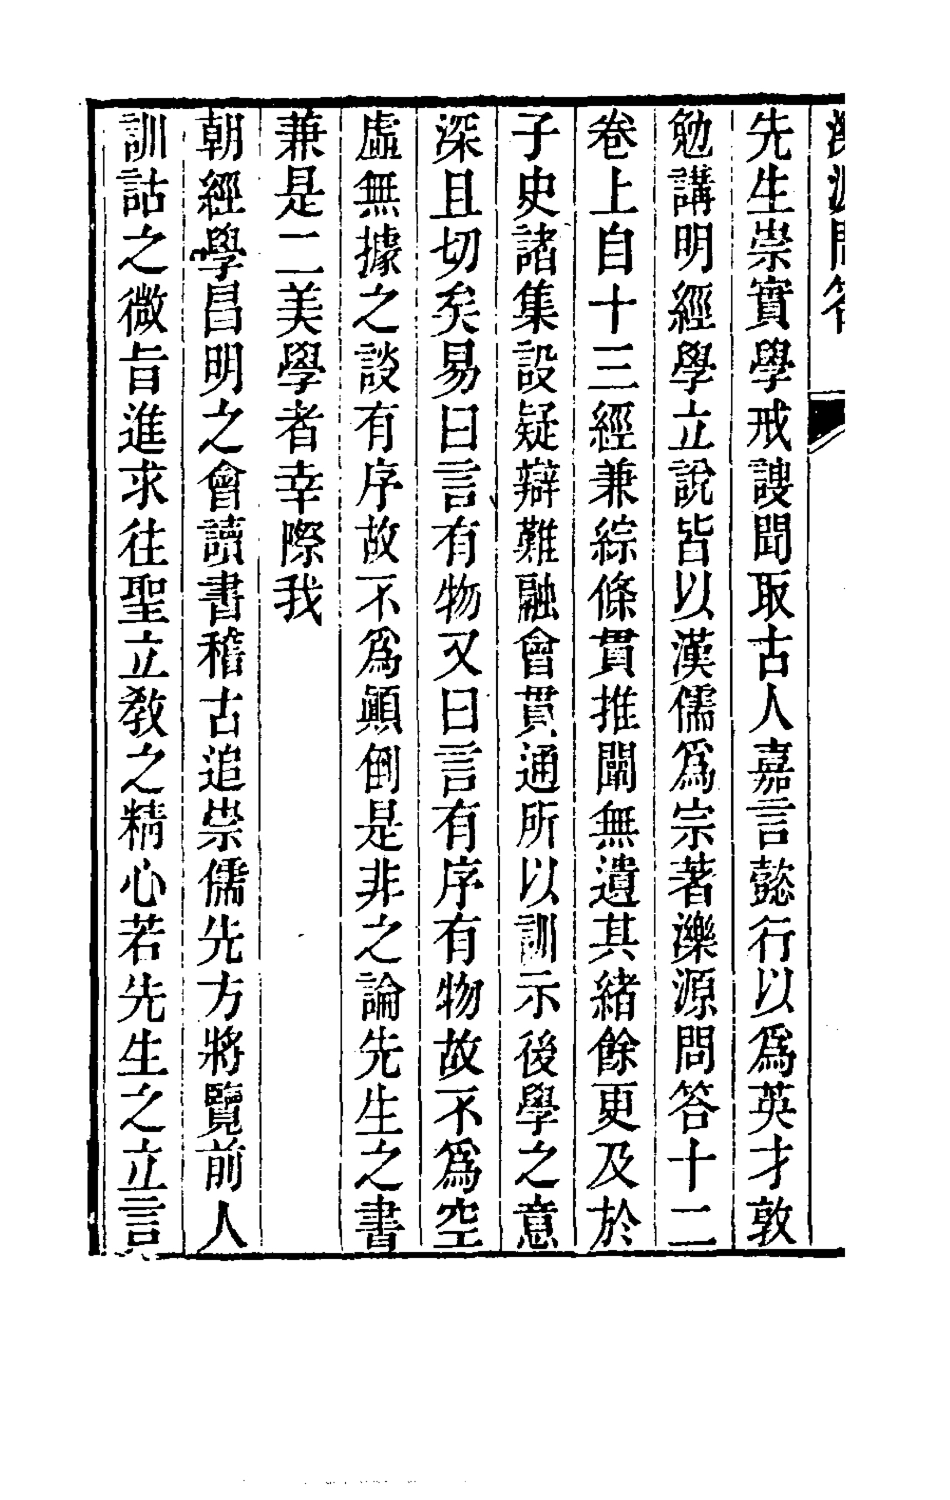 濼源問答
先生崇實學戒謏聞取古人嘉言懿行以爲英才敦
勉講明經學立說皆以漢儒爲宗著濼源問答十二
卷上自十三經兼綜條貫推闡無遺其緒餘更及於
子史諸集設疑辯難融會貫通所以訓示後學之意
深且切矣易曰言有物又曰言有序有物故不爲空
虛無據之談有序故不爲顚倒是非之論先生之書
兼是二美學者幸際我
朝經學昌明之會讀書稽古追崇儒先方將覽前人
訓詁之微旨進求往聖立敎之精心若先生之立言